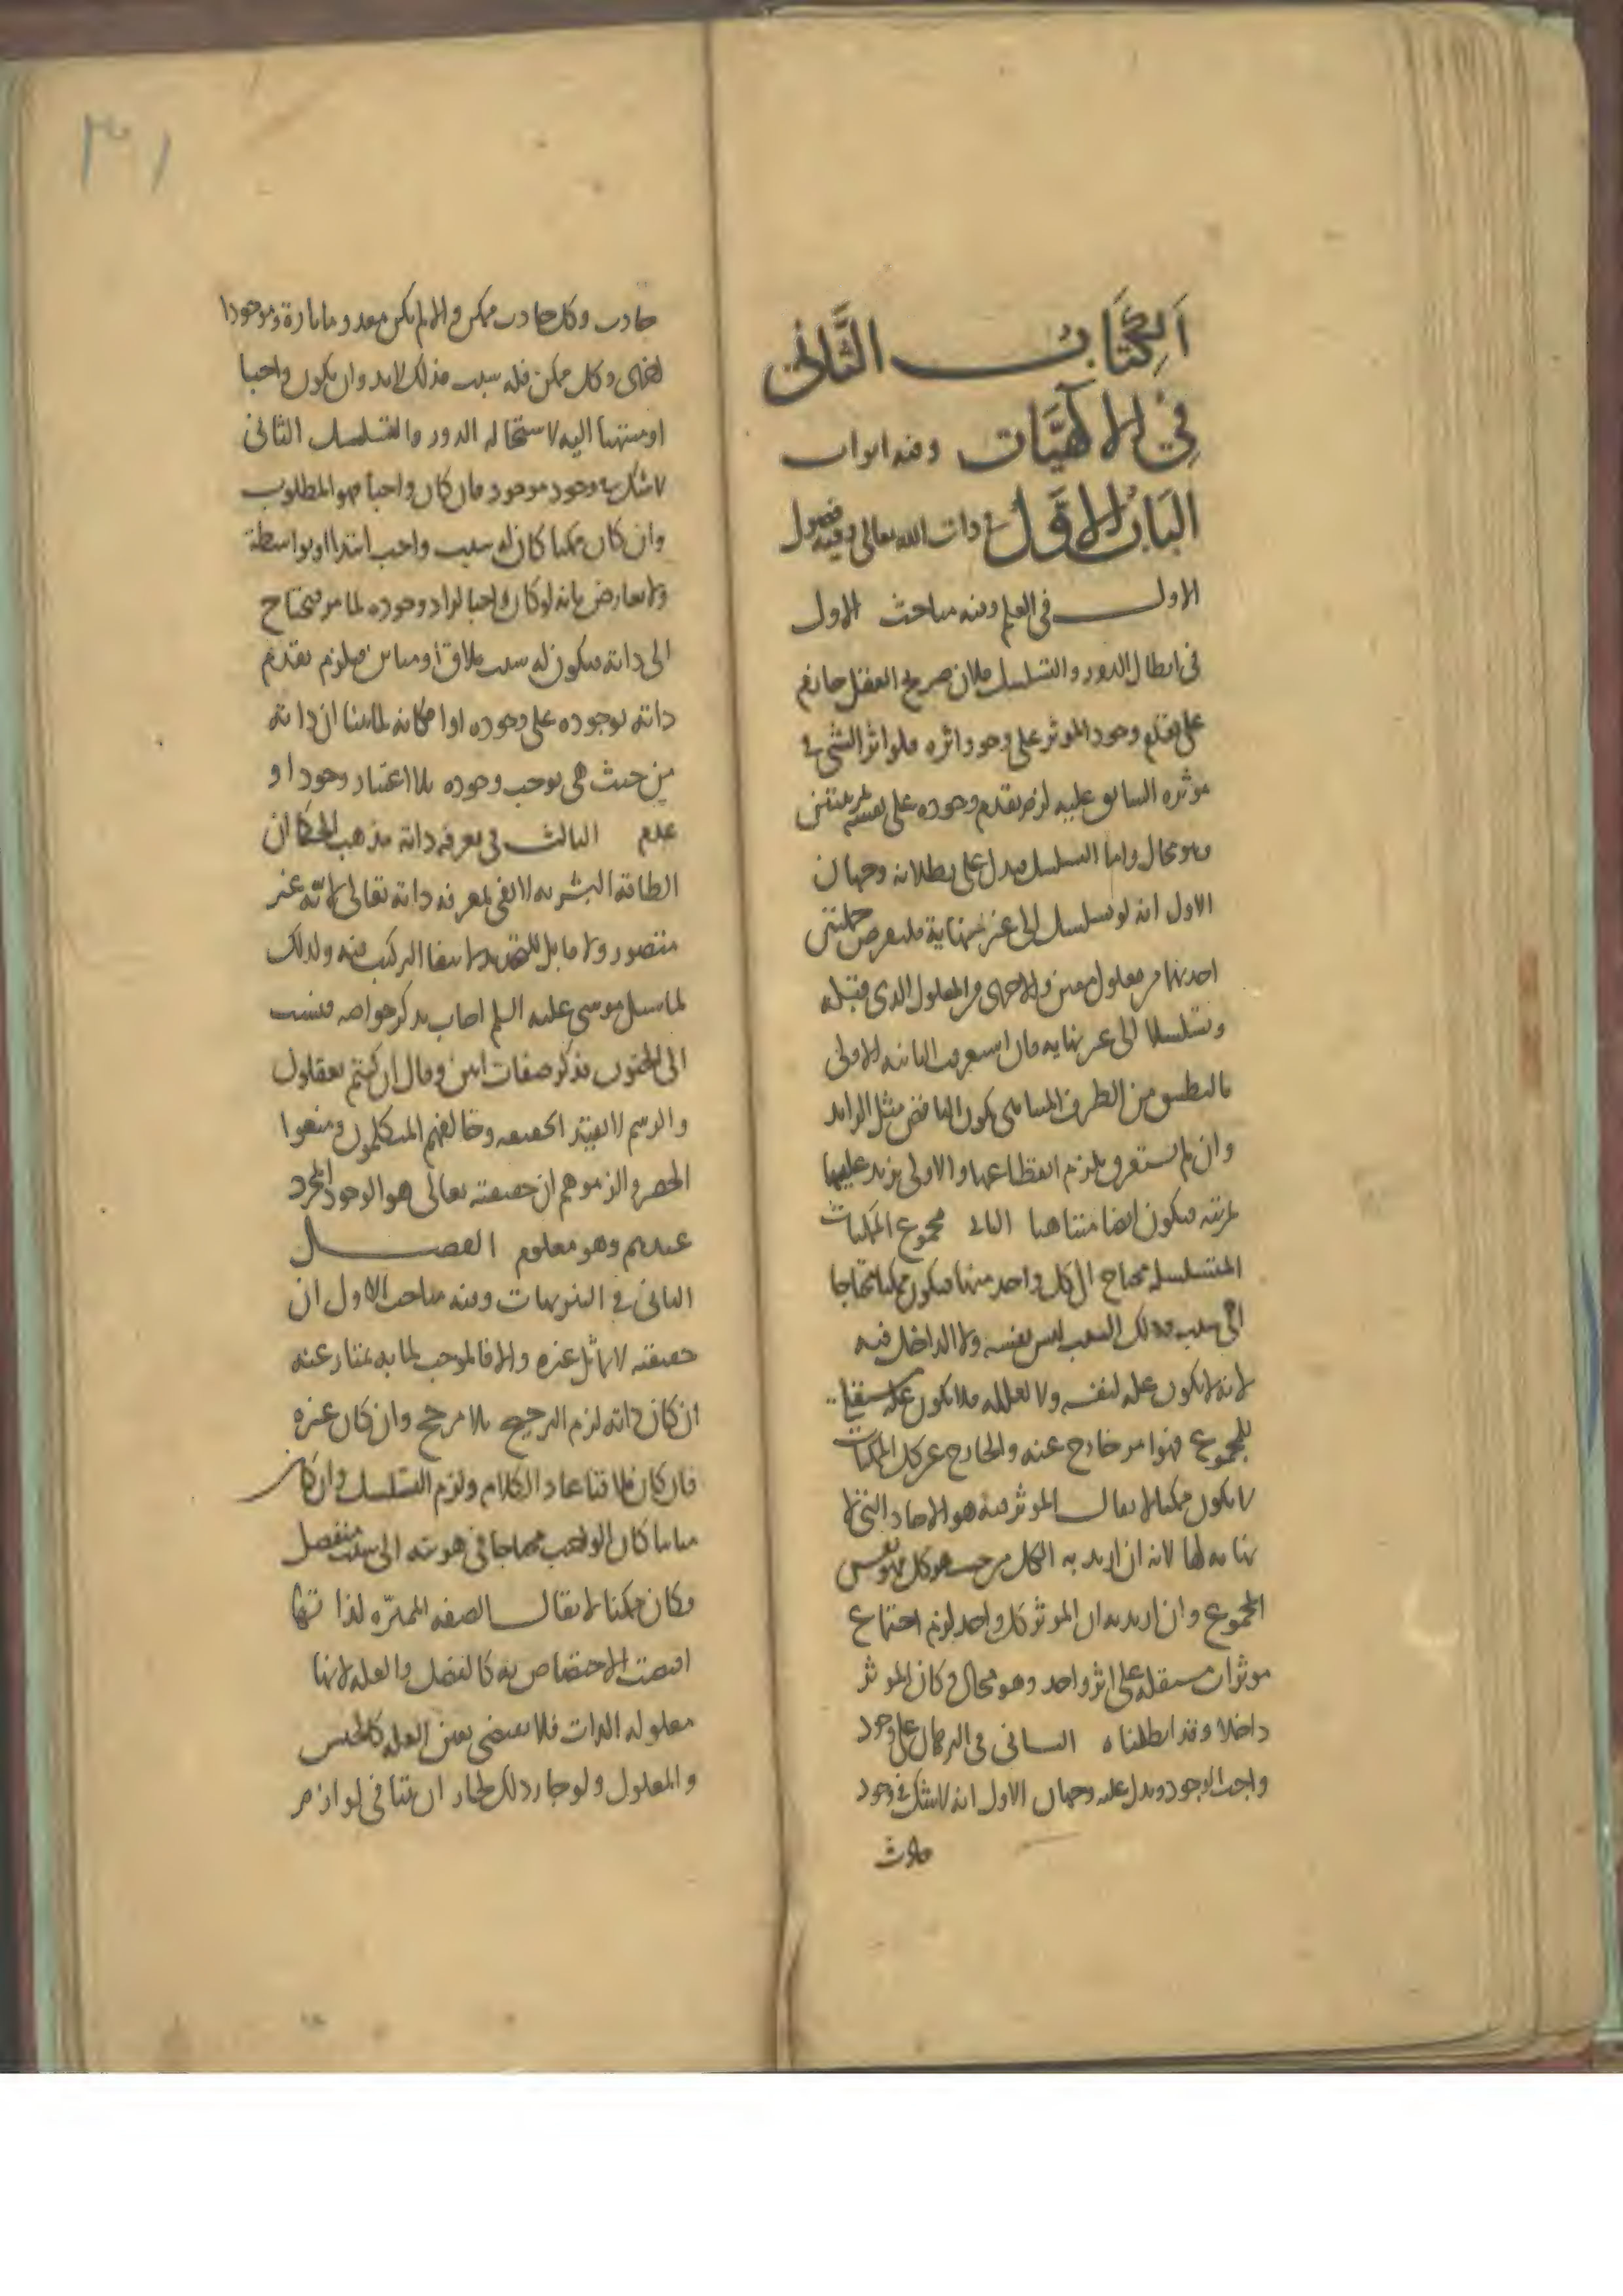 الكتاب الثاني
في الالهيات وفيه ابواب
الباب الاول في ذات الله تعالى وفيه فصول
الاول في العلم وفيه مباحث الاول
في ابطال الدور والتسلسل فلان صريح العقل جازم
على تقدم وجود الموثر على وجود اثره فلو اثر الشي في
موثره السابق عليه لزم تقدم وجوده على نفسه بمرتبتين
وهو محال واما التسلسل فيدل على بطلانه وجهان
الاول انه لو تسلسل الى غير نهاية فليعرض جملتين
احديهما من معلول معين والاخرى من المعلول الذي قبله
وتسلسلا الى غير نهايه فان استغرقت الثانيه الاولى
بالتطبيق من الطرف المتناهي يكون الناقص مثل الزايد
وان لم يستغرق يلزم انقطاعها والاولى يزيد عليها
بمرتبه فيكون ايضا متناهيا الثاني مجموع الممكنات
المتسلسله محتاج الى كل واحد منها فيكون ممكنا محتاجا
الى سبب وذلك السبب ليس نفسه ولا الداخل فيه
لانه لا يكون عله لنفسه ولا لعلله فلا يكون عله مستقلة
للمجموع فهو امر خارج عنه والخارج عن كل الممكنات
لا يكون ممكنا لا يقال الموثر فيه هو الاحاد التي لا
نهايه لها لانه ان اريد به الكل من حيث هو كل فهو نفس
المجموع وان اريد به ان الموثر كل واحد لزم اجتماع
موثرات مستقله على اثر واحد وهو محال وكان الموثر
داخلا وقد ابطلناه الثاني في البرهان على وجود
واجب الوجود ويدل عليه وجهان الاول انه لا شك في وجود
حادث
٣١
حادث وكل حادث ممكن والا لم يكن معدوما تارة وموجودا
اخرى وكل ممكن فله سبب وذلك لابد وان يكون واجبا
او منتهيا اليه لاستحاله الدور والتسلسل الثاني
لا شك في وجود موجود فان كان واجبا فهو المطلوب
وان كان ممكنا كان له سبب واجب ابتدا او بواسطة
ولا يعارض بانه لو كان واجبا لزاد وجوده لما مر فيحتاج
الى ذاته فيكون له سبب ملاق او مباين فيلزم تقدم
ذاته بوجوده على وجوده او امكانه لما بينا ان ذاته
من حيث هي توجب وجوده بلا اعتبار وجود او
عدم الثالث في معرفه ذاته مذهب الحكما ان
الطاقه البشريه لا تفي بمعرفه ذاته تعالى لانه غير
متصور ولا قابل للتحديد لانتفا التركيب فيه ولذلك
لما سيل موسى عليه السلم اجاب بذكر خواصه فنسب
الى الجنون فذكر صفات ابين وقال ان كنتم تعقلون
والرسم لا يفيد الحقيقه وخالفهم المتكلمون ومنعوا
الحصر والزموهم ان حقيقته تعالى هو الوجود المجرد
عندهم وهو معلوم الفصل
الثاني في التنزيهات وفيه مباحث الاول ان
حقيقته لا تماثل غيره والا فالموجب لما به يمتاز عنه
ان كان ذاته لزم الترجيح بلا مرجح وان كان غيره
فان كان ملاقيا عاد الكلام ولزم التسلسل وان كان
مباينا كان الواجب محتاجا في هويته الى سبب منفصل
وكان ممكنا لا يقال الصفه المميزه لذاتها
اقتضت الاختصاص به كالفصل والعله لانها
معلوله الذات فلا يقتضي تعين العله كالجنس
والمعلول ولو جاز ذلك لجاز ان يتنافى لوازم